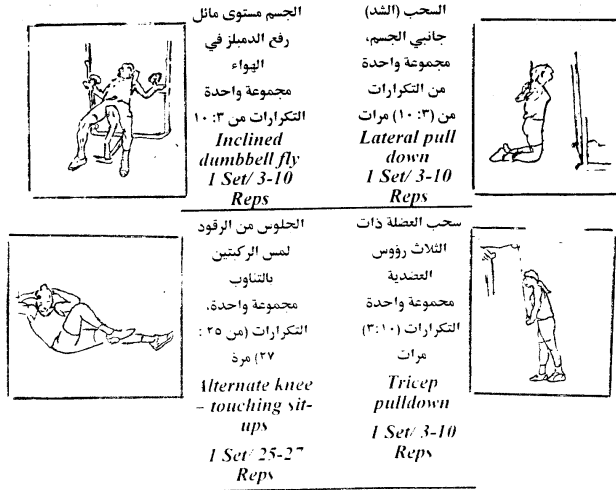 السحب (الشد)
جانبي الجسم،
مجموعة واحدة
من التكرارات
من (٣: ١٠) مرات
Lateral pull
down
1 Set/ 3-10
Reps
الجسم مستوى مائل
رفع الدمبلز في
الهواء
مجموعة واحدة
التكرارات من ٣: ١٠
Inclined
dumbbell fly
1 Set/ 3-10
Reps
سحب العضلة ذات
الثلاث رؤوس
العضدية
مجموعة واحدة
التكرارات (٣:١٠)
مرات
Tricep
pulldown
1 Set/ 3-10
Reps
الجلوس من الرقود
لمس الركبتين
بالتناوب
مجموعة واحدة،
التكرارات (من ٢٥ :
٢٧) مرة
Alternate knee
– touching sit-
ups
1 Set/ 25-27
Reps